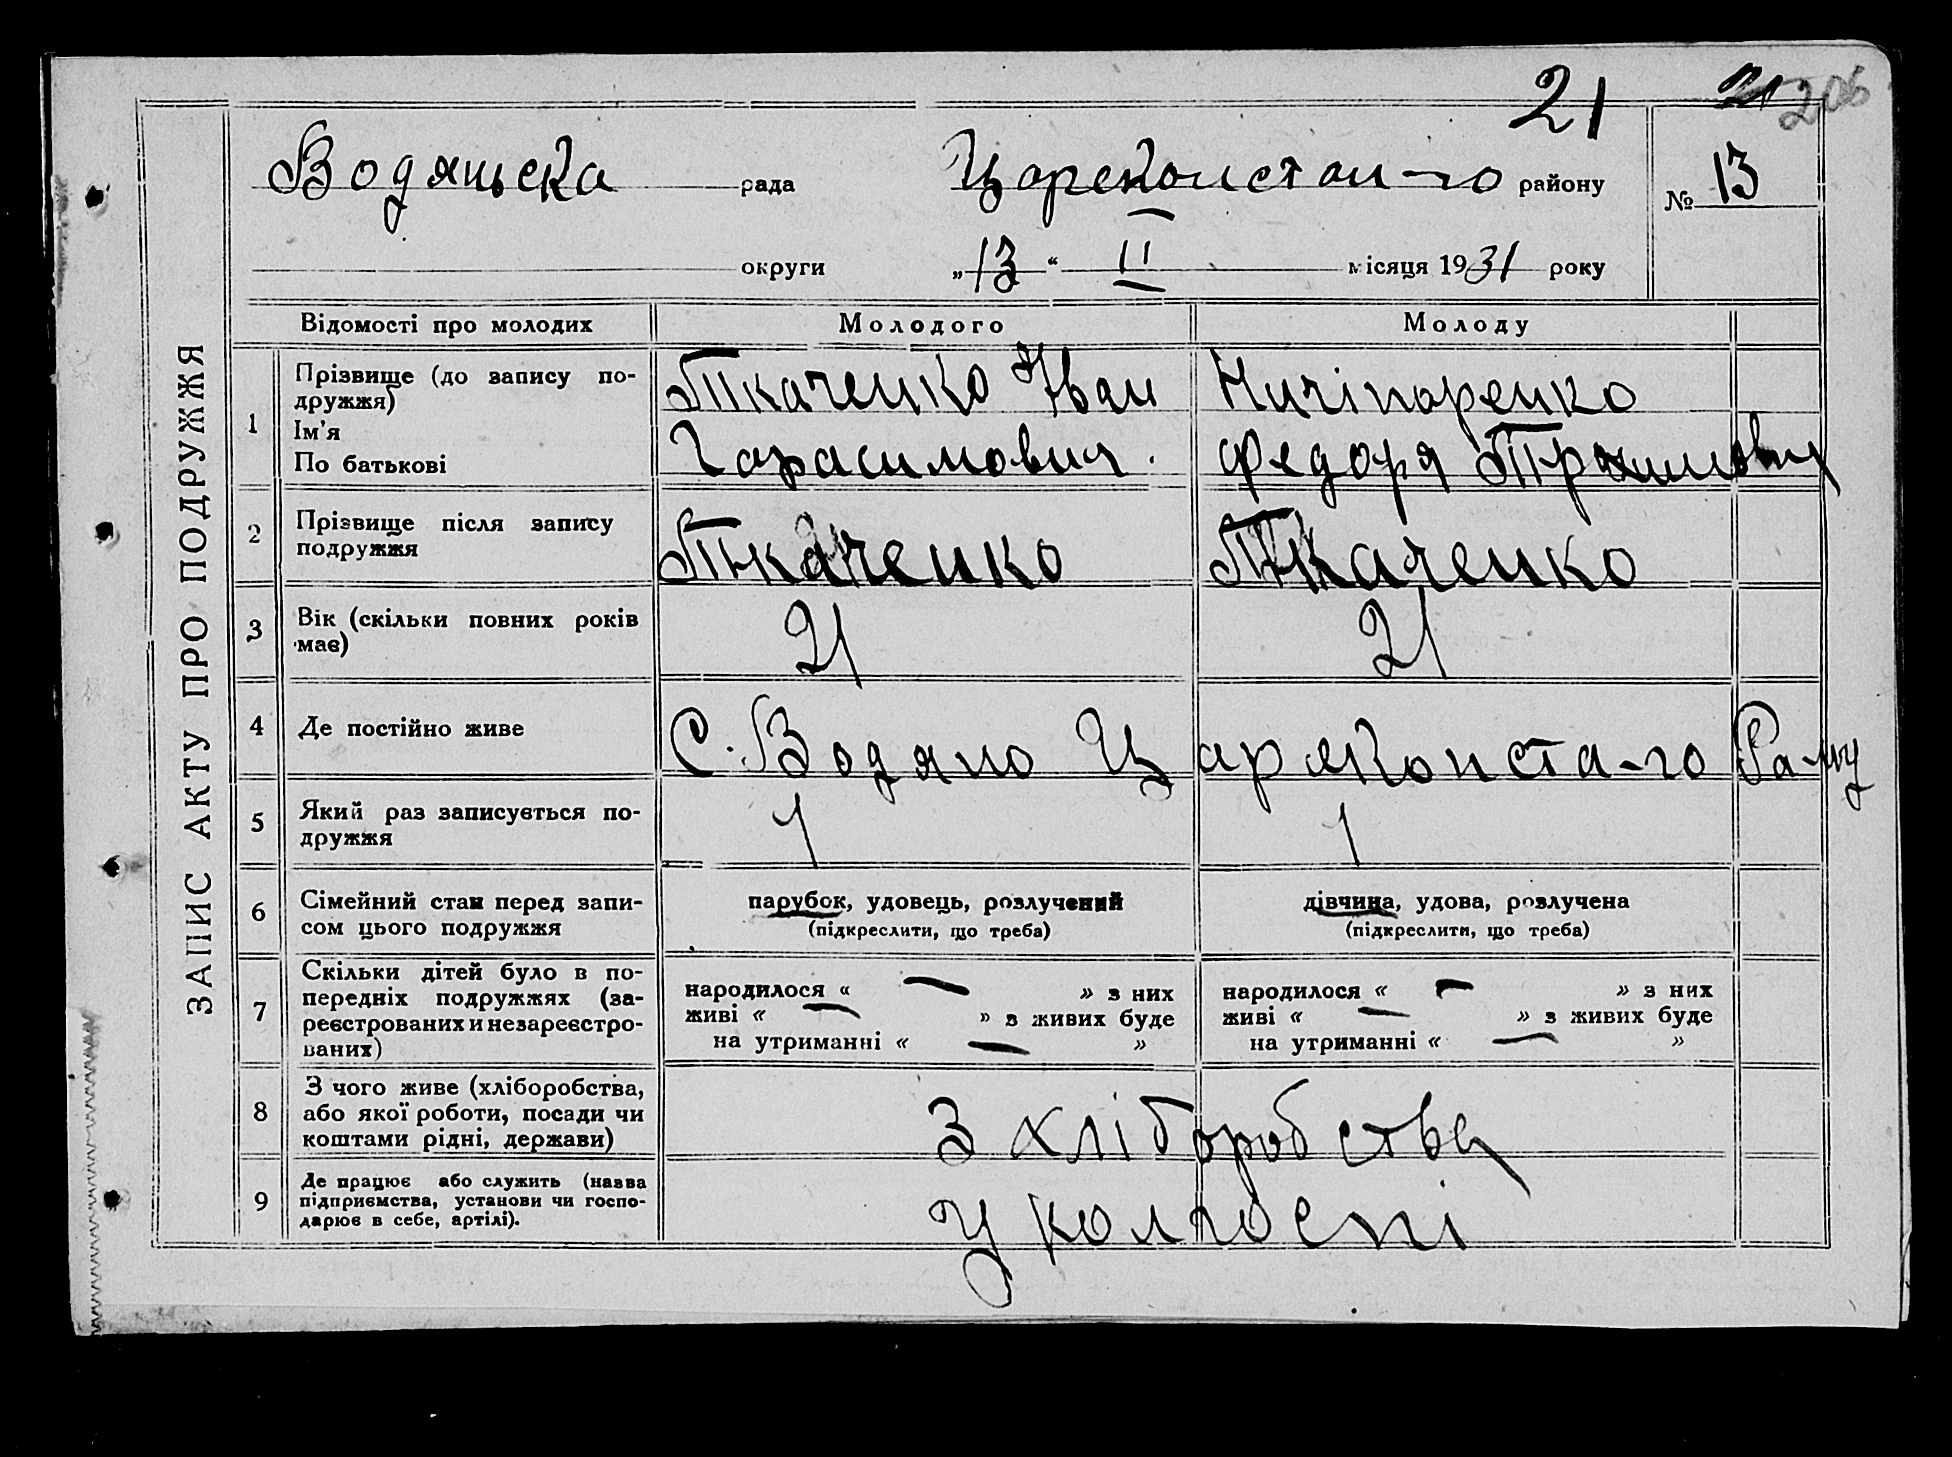 21 21 206
Водяньска рада Цареконстан-го району № 13
округи „13“ II місяця 1931 року
ЗАПИС АКТУ ПРО ПОДРУЖЖЯ
Відомості про молодих Молодого Молоду
1 Прізвище (до запису по-
дружжя)
Ім'я
По батькові
Ткаченко Іван
Гарасимович.
Ничіпоренко
Федоря
2 Прізвище після запису
подружжя
Ткаченко Ткаченко
3 Вік (скільки повних років
має)
21 21
4 Де постійно живе С. Водяно Царяконста-го Ра-ну
5 Який раз записується по-
дружжя
1 1
6 Сімейний стан перед запи-
сом цього подружжя
парубок, удовець, розлучений
(підкреслити, що треба)
дівчина, удова, розлучена
(підкреслити, що треба)
7 Скільки дітей було в по-
передніх подружжях (за-
реєстрованих и незареєстро-
ваних)
народилося « — » з них
живі « — » з живих буде
на утриманні « — »
народилося « — » з них
живі « — » з живих буде
на утриманні « — »
8 З чого живе (хліборобства,
або якої роботи, посади чи
коштами рідні, держави)
З хліборобства
9 Де працює або служить (назва
підприємства, установи чи госпо-
дарює в себе, артілі).
у колгоспі